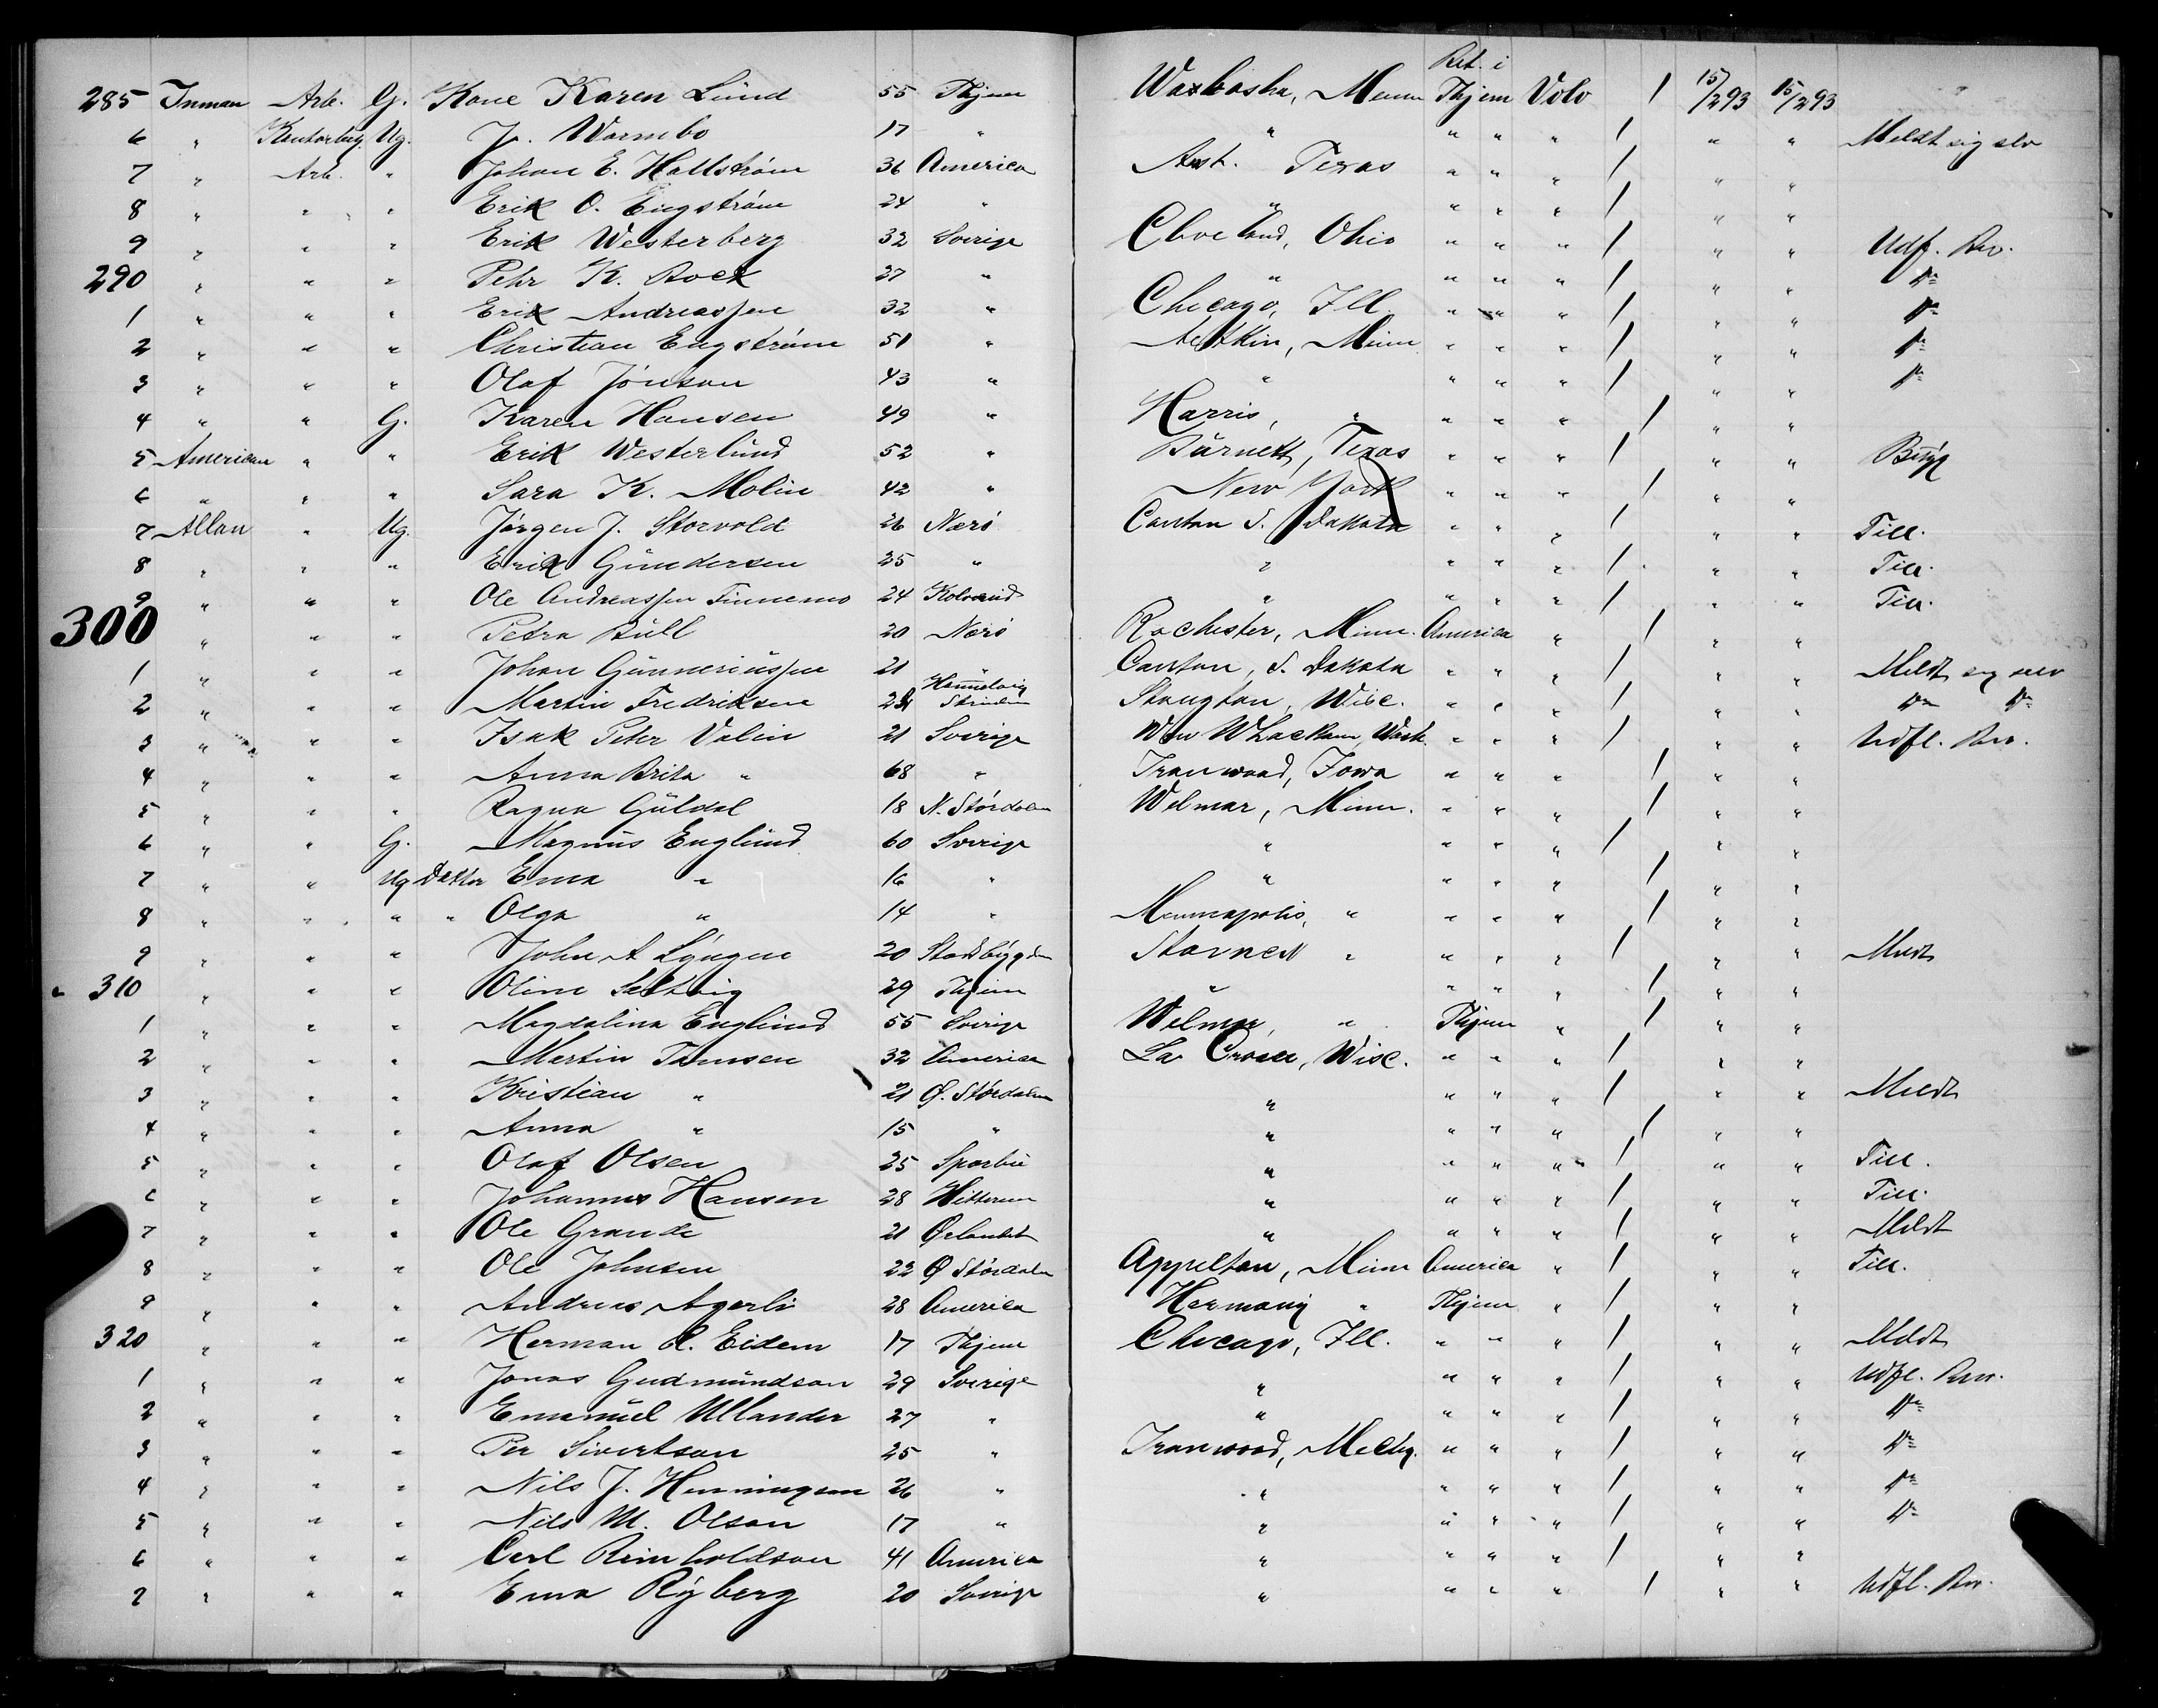 Bet. i
285 Inman Arb. G. Kone Karen Lund 55 Thjem Waxbasha, Minn Thjem Volo / 15/293 15/293
6 " Kontorbetj. Ug. J. Warmbo 17 " " " " " / " " Meldt sig selv
7 " Arb. " Johan E. Hallström 36 America Aust. Texas " " " / " "
8 " " " Erik O. Engström 24 " " " " " / " "
9 " " " Erik Westerberg 32 Sverige Cleveland, Ohio " " " / " " Udfl. Bev.
290 " " " Pehr K. Bock 27 " " " " " / " " Do
1 " " " Erik Andreassen 32 " Chicago, Ill. " " " / " " Do
2 " " " Christian Engström 51 " Aitkin, Minn " " " / " " Do
3 " " " Olaf Jönson 43 " " " " " / " " Do
4 " " G. Karen Hansen 49 " Harris, " " " " / " "
5 American " " Erik Westerlund 52 " Burnett, Texas " " " / " "
6 " " " Sara K. Molin 42 " New York " " " / " "
7 Allan " Ug. Jörgen J. Storvold 26 Nærö Canton S. Dakota " " " / " " Till.
8 " " " Erik Gundersen 25 " " " " " / " " Till.
9 " " " Ole Andreassen Finnemo 24 Kolvereid " " " " / " " Till.
300 " " " Petra Bull 20 Nærö Rochester, Minn. America " / " "
1 " " " Johan Gunneriussen 21 Canton, S. Dakota " " " / " " Meldt sig selv
2 " " " Martin Fredriksen Strinden Stougton, Wisc. " " " / " " Do Do
3 " " " Isak Peter Valin 21 Sverige Wash. " " " / " " Udfl. Bev.
4 " " " Anna Brita " 68 " Iranwood, Iowa " " " / " "
5 " " " Ragna Guldal 18 N. Stördalen Welmar, Minn. " " " / " "
6 " " G. Magnus Englund 60 Sverige " " " " / " "
7 " " Ug Datter Ema " 16 " " " " " / " "
8 " " " " Olga " 14 " Minneapolis, " " " " / " "
9 " " " John A Lyngen 20 Stadsbygden " " " " / " " Meldt
310 " " " Oline Saltvig 29 Thjem " " " " / " "
1 " " " Magdalina Englund 55 Sverige Welmar, " Thjem " / " "
2 " " " Martin Tomsen 32 America La Crosse, Wisc. " " " / " "
3 " " " Kristian " 21 Ø. Stördalen " " " " / " " Meldt
4 " " " Anna " 15 " " " " " / " "
5 " " " Olaf Olsen 25 Sparbu " " " " / " " Till.
6 " " " Johannes Hansen 28 Hitteren " " " " / " " Till.
7 " " " Ole Grande 21 Ørlandet " " " " / " " Meldt
8 " " " Ole Johnsen 22 Ø Stördalen Appelton, Minn America " / " " Till.
9 " " " Andreas Agerli 28 America Hermany " Thjem " / " "
320 " " " Herman R. Eidem 17 Thjem Chicago, Ill. " " " / " " Meldt
1 " " " Jonas Gudmundson 29 Sverige " " " " / " " Udfl. Bev.
2 " " " Emanuel Ullander 27 " " " " " / " " Do
3 " " " Per Sivertson 25 " Iranwood, Michg. " " " / " " Do
4 " " " Nils J. Henningsen 26 " " " " " / " " Do
5 " " " Nils M. Olson 17 " " " " " / " " Do
6 " " " Carl Reinholdson 41 America " " " " / " "
7 " " " Ema Ryberg 20 Sverige " " " " / " " Udfl. Bev.